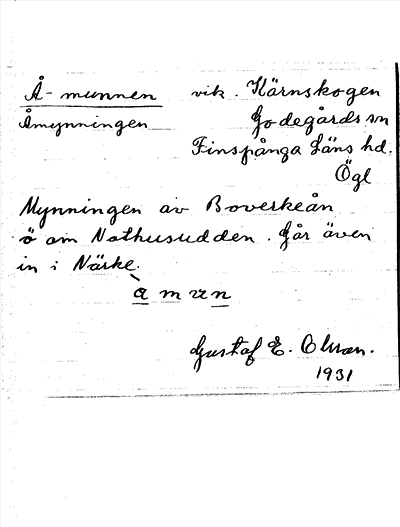 Å-munnen vik. Kärnskogen
Åmynningen Godegårds sn
Finspånga Läns hd.
Ögl
Mynningen av Boverkeån
ö om Nothusudden. Går även
in i Närke.
a m u n
Gustaf E. Olsson.
1931